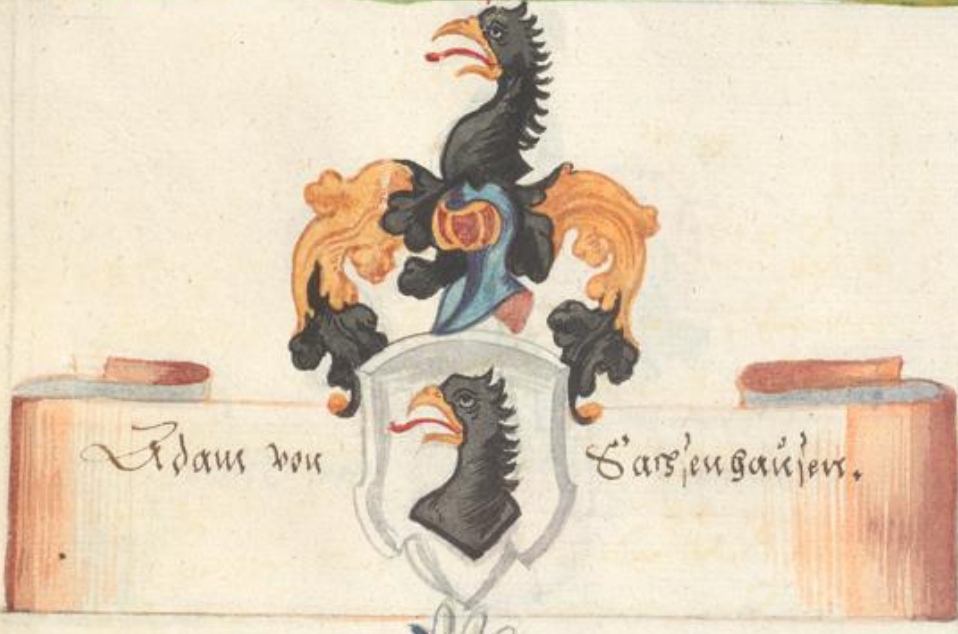 Adam von Sachsenhausen.